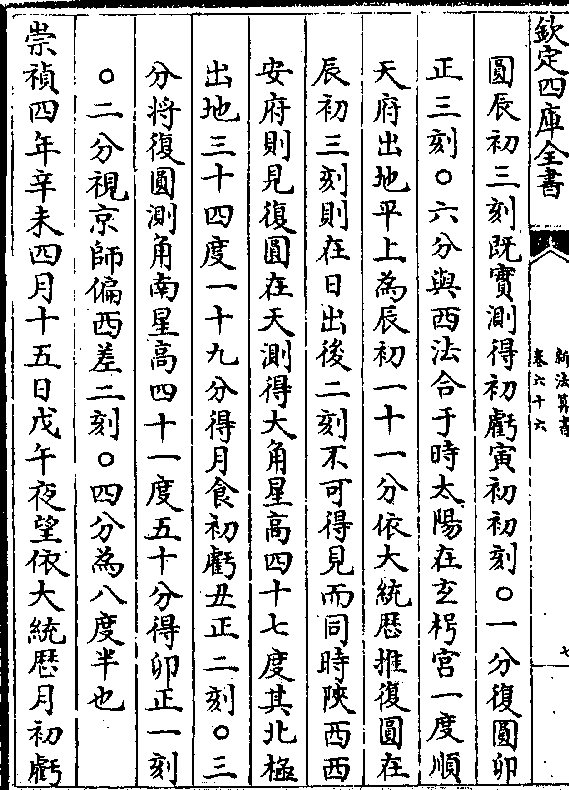 欽定四庫全書
新法算書
卷六十六
七
圓辰初三刻既實測得初虧寅初初刻○一分復圓卯
正三刻○六分與西法合于時太陽在玄枵宮一度順
天府出地平上為辰初一十一分依大統歷推復圓在
辰初三刻則在日出後二刻不可得見而同時陝西西
安府則見復圓在天測得大角星高四十七度其北極
出地三十四度一十九分得月食初虧丑正二刻○三
分將復圓測角南星高四十一度五十分得卯正一刻
○二分視京師偏西差二刻○四分為八度半也
崇禎四年辛未四月十五日戊午夜望依大統歷月初虧